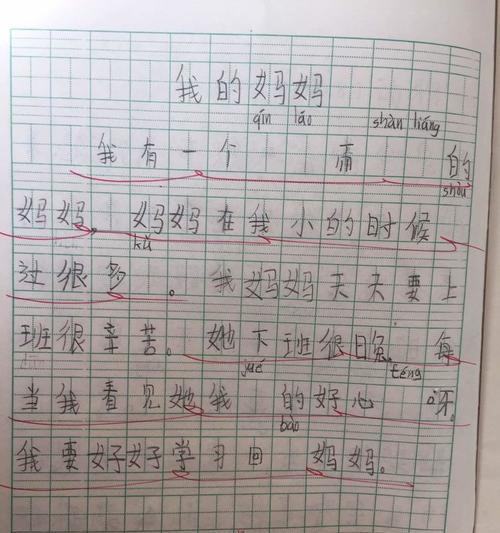 我的妈妈
qín láo shàn liáng
我有一个 而 的
shòu
妈妈。妈妈在我小的时候
kǔ
过很多 。我妈妈天天要上
班很辛苦。她下班很晚。每
jué téng
当我看见她我 的好心 呀。
bào
我要好好学习回 妈妈。